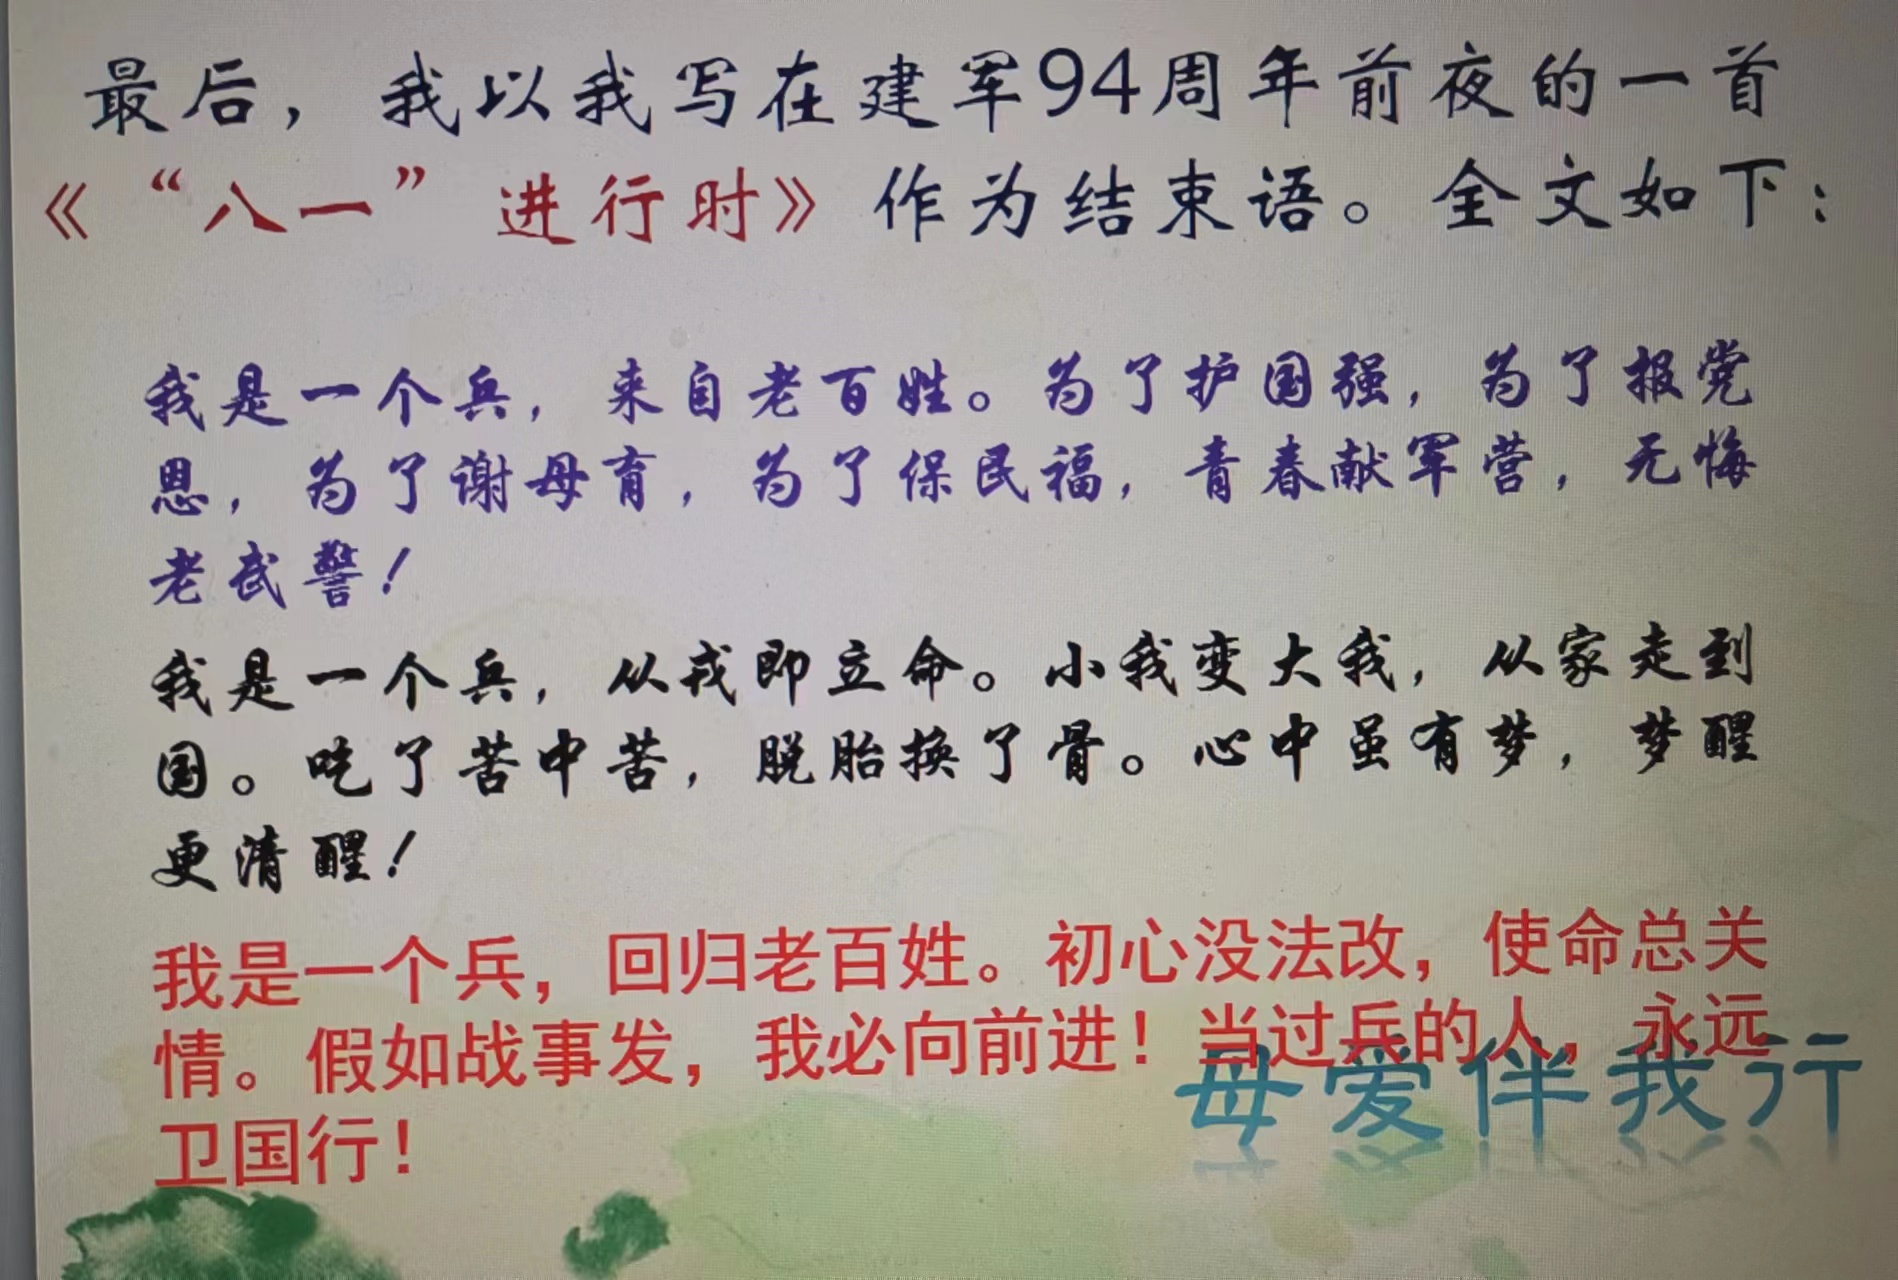 最后，我以我写在建军94周年前夜的一首
《“八一”进行时》作为结束语。全文如下：
我是一个兵，来自老百姓。为了护国强，为了报党
恩，为了谢母育，为了保民福，青春献军营，无悔
老武警！
我是一个兵，从戎即立命。小我变大我，从家走到
国。吃了苦中苦，脱胎换了骨。心中虽有梦，梦醒
更清醒！
我是一个兵，回归老百姓。初心没法改，使命总关
情。假如战事发，我必向前进！当过兵的人，永远
卫国行！
母爱伴我行